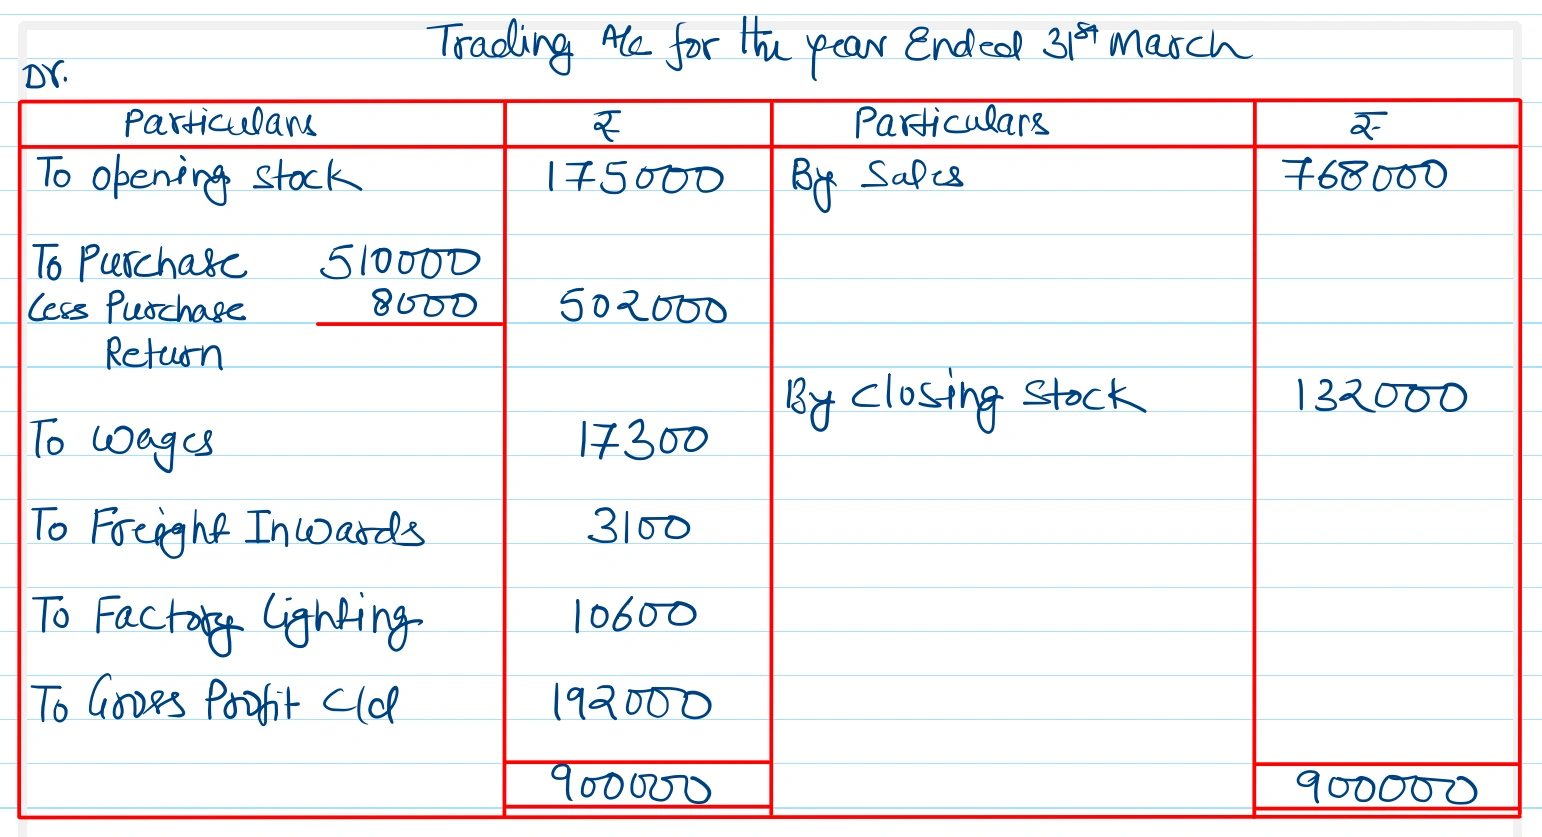 Trading A/c for the year Ended 31st March
Dr.
Particulars ₹ Particulars ₹
To opening stock 175000 By Sales 768000
To Purchase 510000
Less Purchase 8000 502000
Return
By Closing Stock 132000
To Wages 17300
To Freight Inwards 3100
To Factory Lighting 10600
To Gross Profit c/d 192000
900000 900000